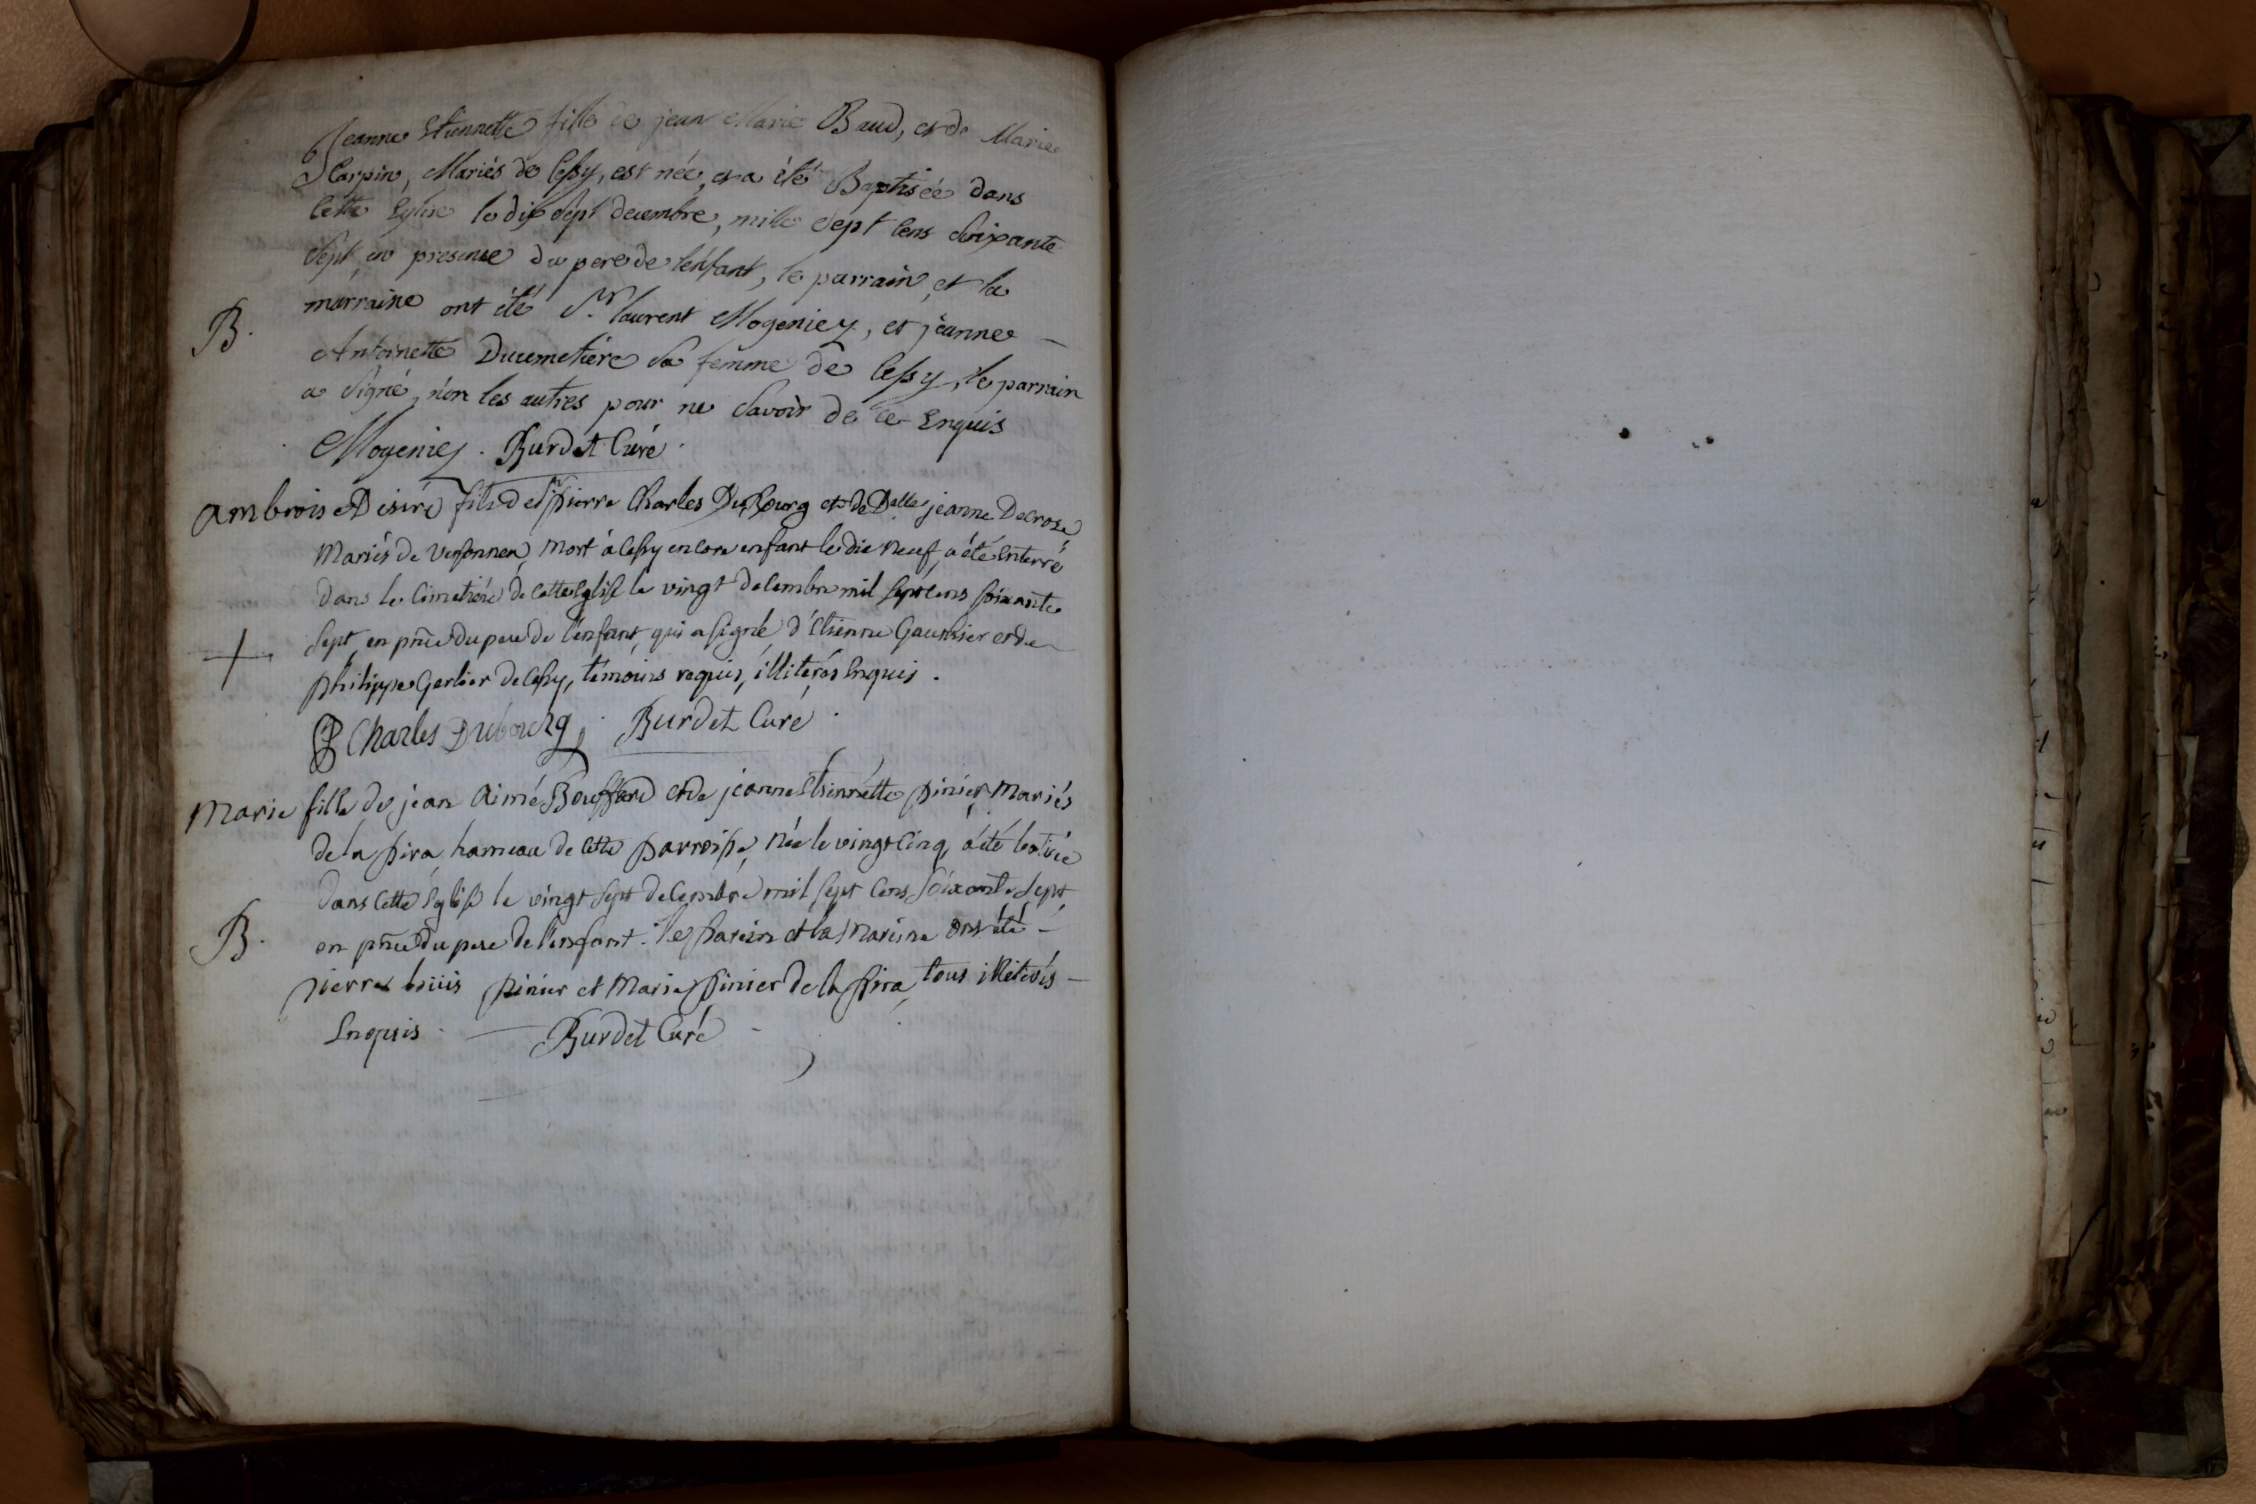 Jeanne Etiennette fille de jean Marie Baud, et de Marie
Carpin, Mariés de Cessy, est née, et a été Baptisée dans
Cette Eglise le dix Sept decembre, mille Sept Cens Soixante
Sept en presence du pere de lenfant, le parrain, et la
B. marraine ont été Sr. laurent Mogeniez, et jeanne -
Antoinette Ducimetiére Sa femme de Cessy, le parrain
a Signé, non les autres pour ne Savoir de ce Enquis
Mogeniez. Burdet Curé.
Ambroise Desiré fils de Sr pierre Charles Dubourg et de Delle jeanne Decroze
Mariés de Versonnex, Mort à Cessy encore enfant le die neuf, a été Enterré
Dans le Cimetiére de Cette Eglise le vingt decembre mil Sept Cens Soixante
+ Sept, en pnce du pere de l'enfant, qui a Signé d'Etienne Gauthier et de
philippe Gerlier de Cessy, témoins requis, illiterés Enquis.
P Charles Dubourg. Burdet Curé.
Marie fille de jean Aimé Bouffard et de jeanne Etiennette pinier Mariés
de la pira hameau de Cette parroisse, Née le vingt Cinq, a été batisée
dans Cette Eglise le vingt Sept decembre mil Sept Cens Soixante Sept,
B. en pnce du pere de l'enfant. le parein et la Mareine ont été -
pierre pinier et Marie pinier de la pira, tous illiterés -
Enquis. - Burdet Curé -